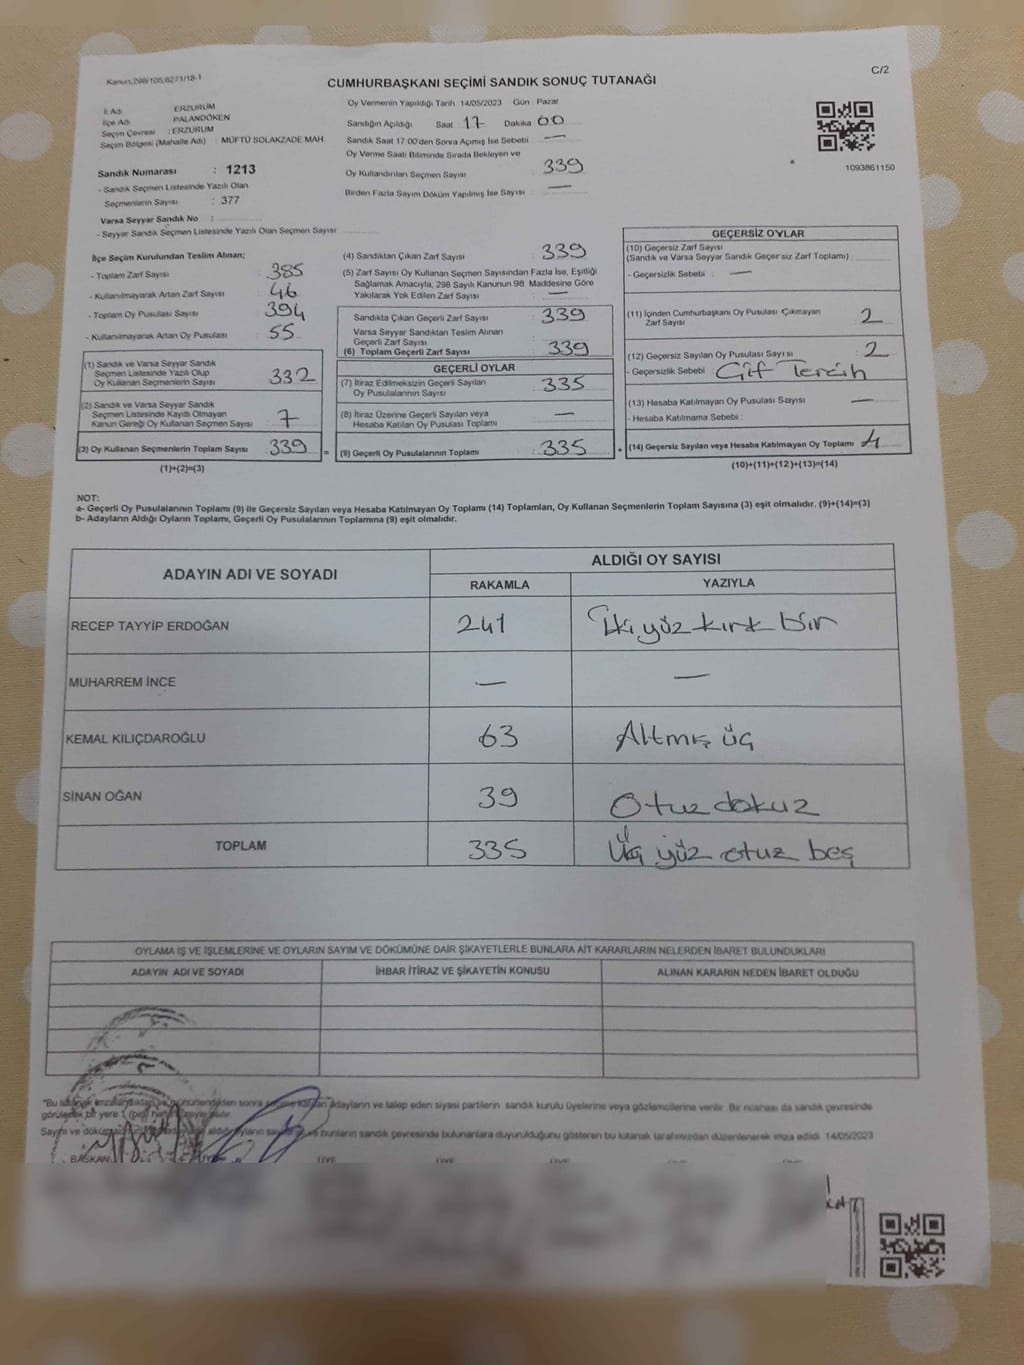 Kanun:298/105,6271/18-1
C/2
CUMHURBAŞKANI SEÇİMİ SANDIK SONUÇ TUTANAĞI
İl Adı : ERZURUM
İlçe Adı : PALANDÖKEN
Seçim Çevresi : ERZURUM
Seçim Bölgesi (Mahalle Adı) : MÜFTÜ SOLAKZADE MAH.
Sandık Numarası : 1213
- Sandık Seçmen Listesinde Yazılı Olan
Seçmenlerin Sayısı : 377
Varsa Seyyar Sandık No :
- Seyyar Sandık Seçmen Listesinde Yazılı Olan Seçmen Sayısı
Oy Vermenin Yapıldığı Tarih 14/05/2023 Gün Pazar
Sandığın Açıldığı Saat 17 Dakika 00
Sandık Saat 17:00'den Sonra Açımış İse Sebebi —
Oy Verme Saati Bitiminde Sırada Bekleyen ve
Oy Kullandırılan Seçmen Sayısı 339
Birden Fazla Sayım Döküm Yapılmış İse Sayısı —
1093861150
İlçe Seçim Kurulundan Teslim Alınan;
- Toplam Zarf Sayısı 385
- Kullanılmayarak Artan Zarf Sayısı 46
- Toplam Oy Pusulası Sayısı 394
- Kullanılmayarak Artan Oy Pusulası 55
(1) Sandık ve Varsa Seyyar Sandık
Seçmen Listesinde Yazılı Olup
Oy Kullanan Seçmenlerin Sayısı 332
(2) Sandık ve Varsa Seyyar Sandık
Seçmen Listesinde Kayıtlı Olmayan
Kanun Gereği Oy Kullanan Seçmen Sayısı 7
(3) Oy Kullanan Seçmenlerin Toplam Sayısı 339
(1)+(2)=(3)
(4) Sandıktan Çıkan Zarf Sayısı 339
(5) Zarf Sayısı Oy Kullanan Seçmen Sayısından Fazla İse, Eşitliği
Sağlamak Amacıyla; 298 Sayılı Kanunun 98. Maddesine Göre
Yakılarak Yok Edilen Zarf Sayısı —
Sandıkta Çıkan Geçerli Zarf Sayısı 339
Varsa Seyyar Sandıktan Teslim Alınan
Geçerli Zarf Sayısı
(6) Toplam Geçerli Zarf Sayısı 339
GEÇERLİ OYLAR
(7) İtiraz Edilmeksizin Geçerli Sayılan
Oy Pusulalarının Sayısı 335
(8) İtiraz Üzerine Geçerli Sayılan veya
Hesaba Katılan Oy Pusulası Toplamı —
= (9) Geçerli Oy Pusulalarının Toplamı : 335
GEÇERSİZ OYLAR
(10) Geçersiz Zarf Sayısı
(Sandık ve Varsa Seyyar Sandık Geçersiz Zarf Toplamı) :
- Geçersizlik Sebebi : —
(11) İçinden Cumhurbaşkanı Oy Pusulası Çıkmayan
Zarf Sayısı 2
(12) Geçersiz Sayılan Oy Pusulası Sayısı 2
- Geçersizlik Sebebi : Çift Tercih
(13) Hesaba Katılmayan Oy Pusulası Sayısı —
- Hesaba Katılmama Sebebi :
+ (14) Geçersiz Sayılan veya Hesaba Katılmayan Oy Toplamı 4
(10)+(11)+(12)+(13)=(14)
NOT:
a- Geçerli Oy Pusulalarının Toplamı (9) ile Geçersiz Sayılan veya Hesaba Katılmayan Oy Toplamı (14) Toplamları, Oy Kullanan Seçmenlerin Toplam Sayısına (3) eşit olmalıdır. (9)+(14)=(3)
b- Adayların Aldığı Oyların Toplamı, Geçerli Oy Pusulalarının Toplamına (9) eşit olmalıdır.
ADAYIN ADI VE SOYADI ALDIĞI OY SAYISI
RAKAMLA YAZIYLA
RECEP TAYYİP ERDOĞAN 241 İki yüz kırk bir
MUHARREM İNCE — —
KEMAL KILIÇDAROĞLU 63 Altmış üç
SİNAN OĞAN 39 Otuz dokuz
TOPLAM 335 Üç yüz otuz beş
OYLAMA İŞ VE İŞLEMLERİNE VE OYLARIN SAYIM VE DÖKÜMÜNE DAİR ŞİKAYETLERLE BUNLARA AİT KARARLARIN NELERDEN İBARET BULUNDUKLARI
ADAYIN ADI VE SOYADI İHBAR İTİRAZ VE ŞİKAYETİN KONUSU ALINAN KARARIN NEDEN İBARET OLDUĞU
"Bu tutanak imzalandıktan ve mühürlendikten sonra adayların ve talep eden siyasi partilerin sandık kurulu üyelerine veya gözlemcilerine verilir. Bir nüshası da sandık çevresinde
görülecek bir yere 1 (bir)
Sayım ve bunların sandık çevresinde bulunanlara duyurulduğunu gösteren bu tutanak tarafımızdan düzenlenerek imza edildi. 14/05/2023
BAŞKAN ÜYE ÜYE ÜYE ÜYE ÜYE